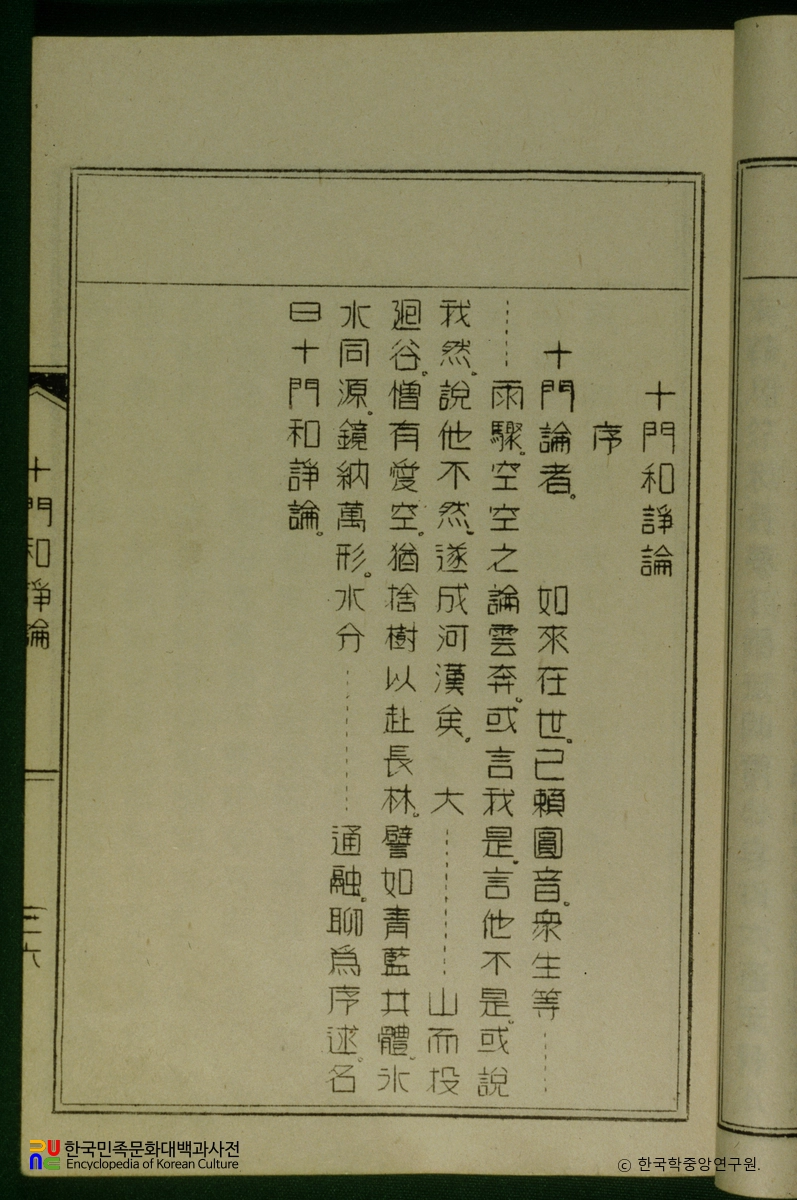 十門和諍論
序
十門論者。　如來在世。已賴圓音。衆生等……
……雨驟。空空之論雲奔。或言我是。言他不是。或說
我然。說他不然。遂成河漢矣。大……山而投
廻谷。憎有愛空。猶捨樹以赴長林。譬如青藍共體。氷
水同源。鏡納萬形。水分……通融。聊爲序述。名
曰十門和諍論。
十門和諍論
三六
한국민족문화대백과사전
Encyclopedia of Korean Culture
© 한국학중앙연구원.